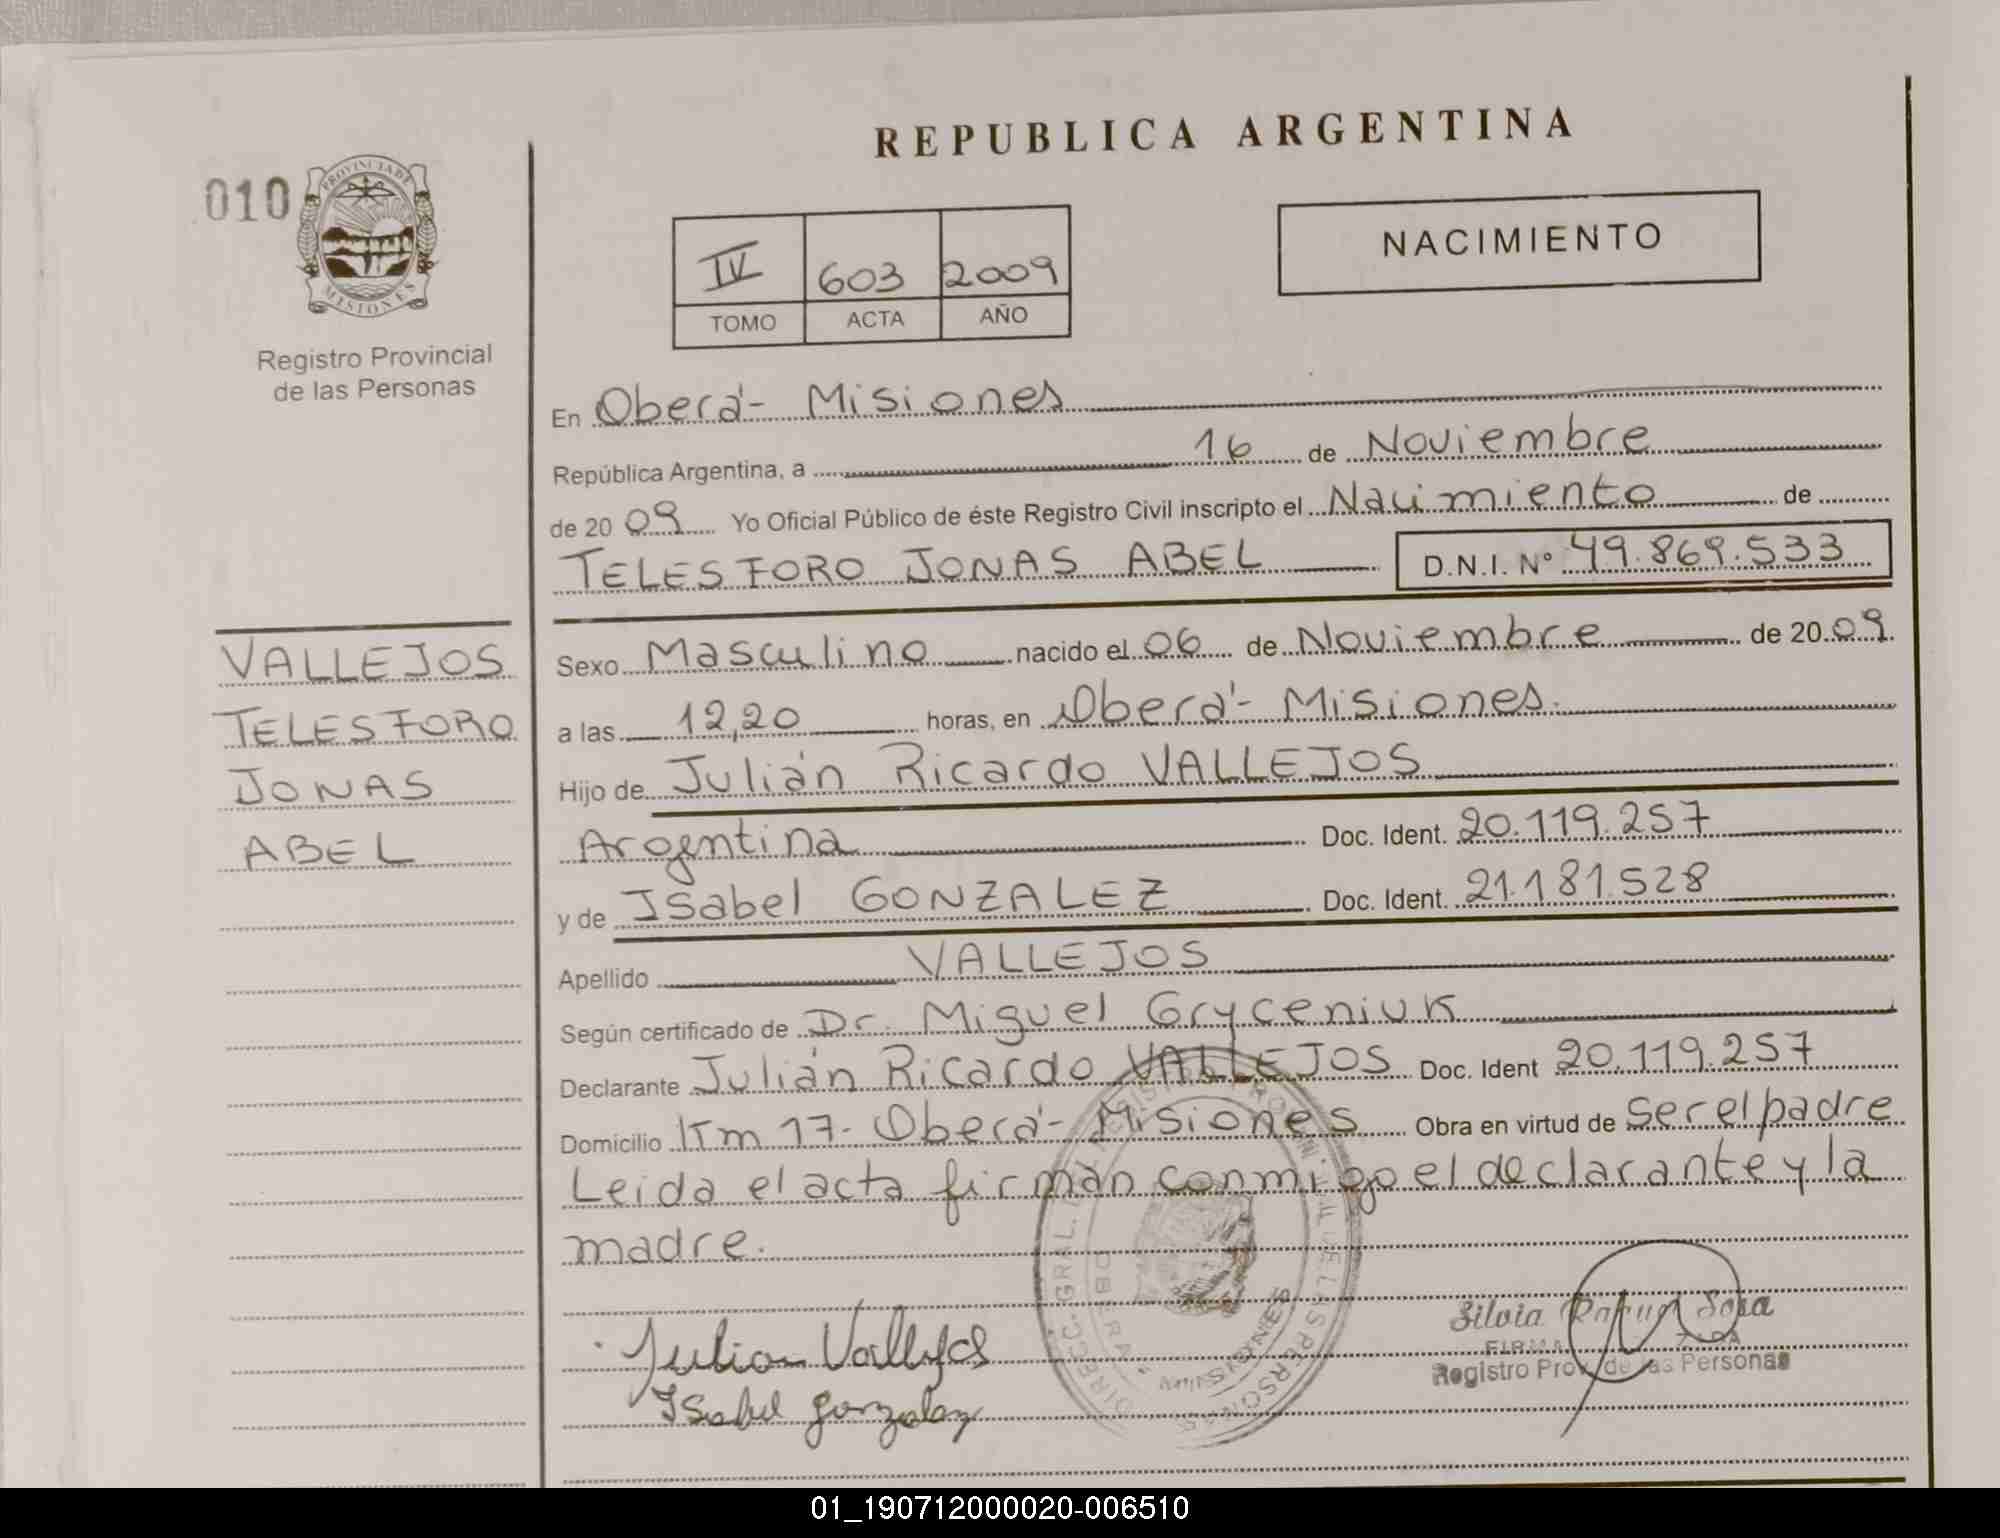 REPUBLICA ARGENTINA
010
PROVINCIA DE
MISIONES
Registro Provincial
de las Personas
NACIMIENTO
IV 603 2009
TOMO ACTA AÑO
En Oberá - Misiones
República Argentina, a 16 de Noviembre
de 20 09 Yo Oficial Público de éste Registro Civil inscripto el Nacimiento de
TELESFORO JONAS ABEL D.N.I. Nº 49.869.533
VALLEJOS
TELESFORO
JONAS
ABEL
Sexo Masculino nacido el 06 de Noviembre de 20 09
a las 12,20 horas, en Oberá - Misiones.
Hijo de Julián Ricardo VALLEJOS
Argentina Doc. Ident. 20.119.257
y de Isabel GONZALEZ Doc. Ident. 21.181.528
Apellido VALLEJOS
Según certificado de Dr. Miguel Gryceniuk
Declarante Julián Ricardo VALLEJOS Doc. Ident 20.119.257
Domicilio Km 17 - Oberá - Misiones Obra en virtud de ser el padre
Leida el acta firman conmigo el declarante y la
madre.
Julian Vallejos
Isabel gonzalez
DIRECC. GRAL. DE LAS PERSONAS
OBERA
MISIONES
Silvia Sosa
FIRMA
Registro Prov. de las Personas
01_190712000020-006510